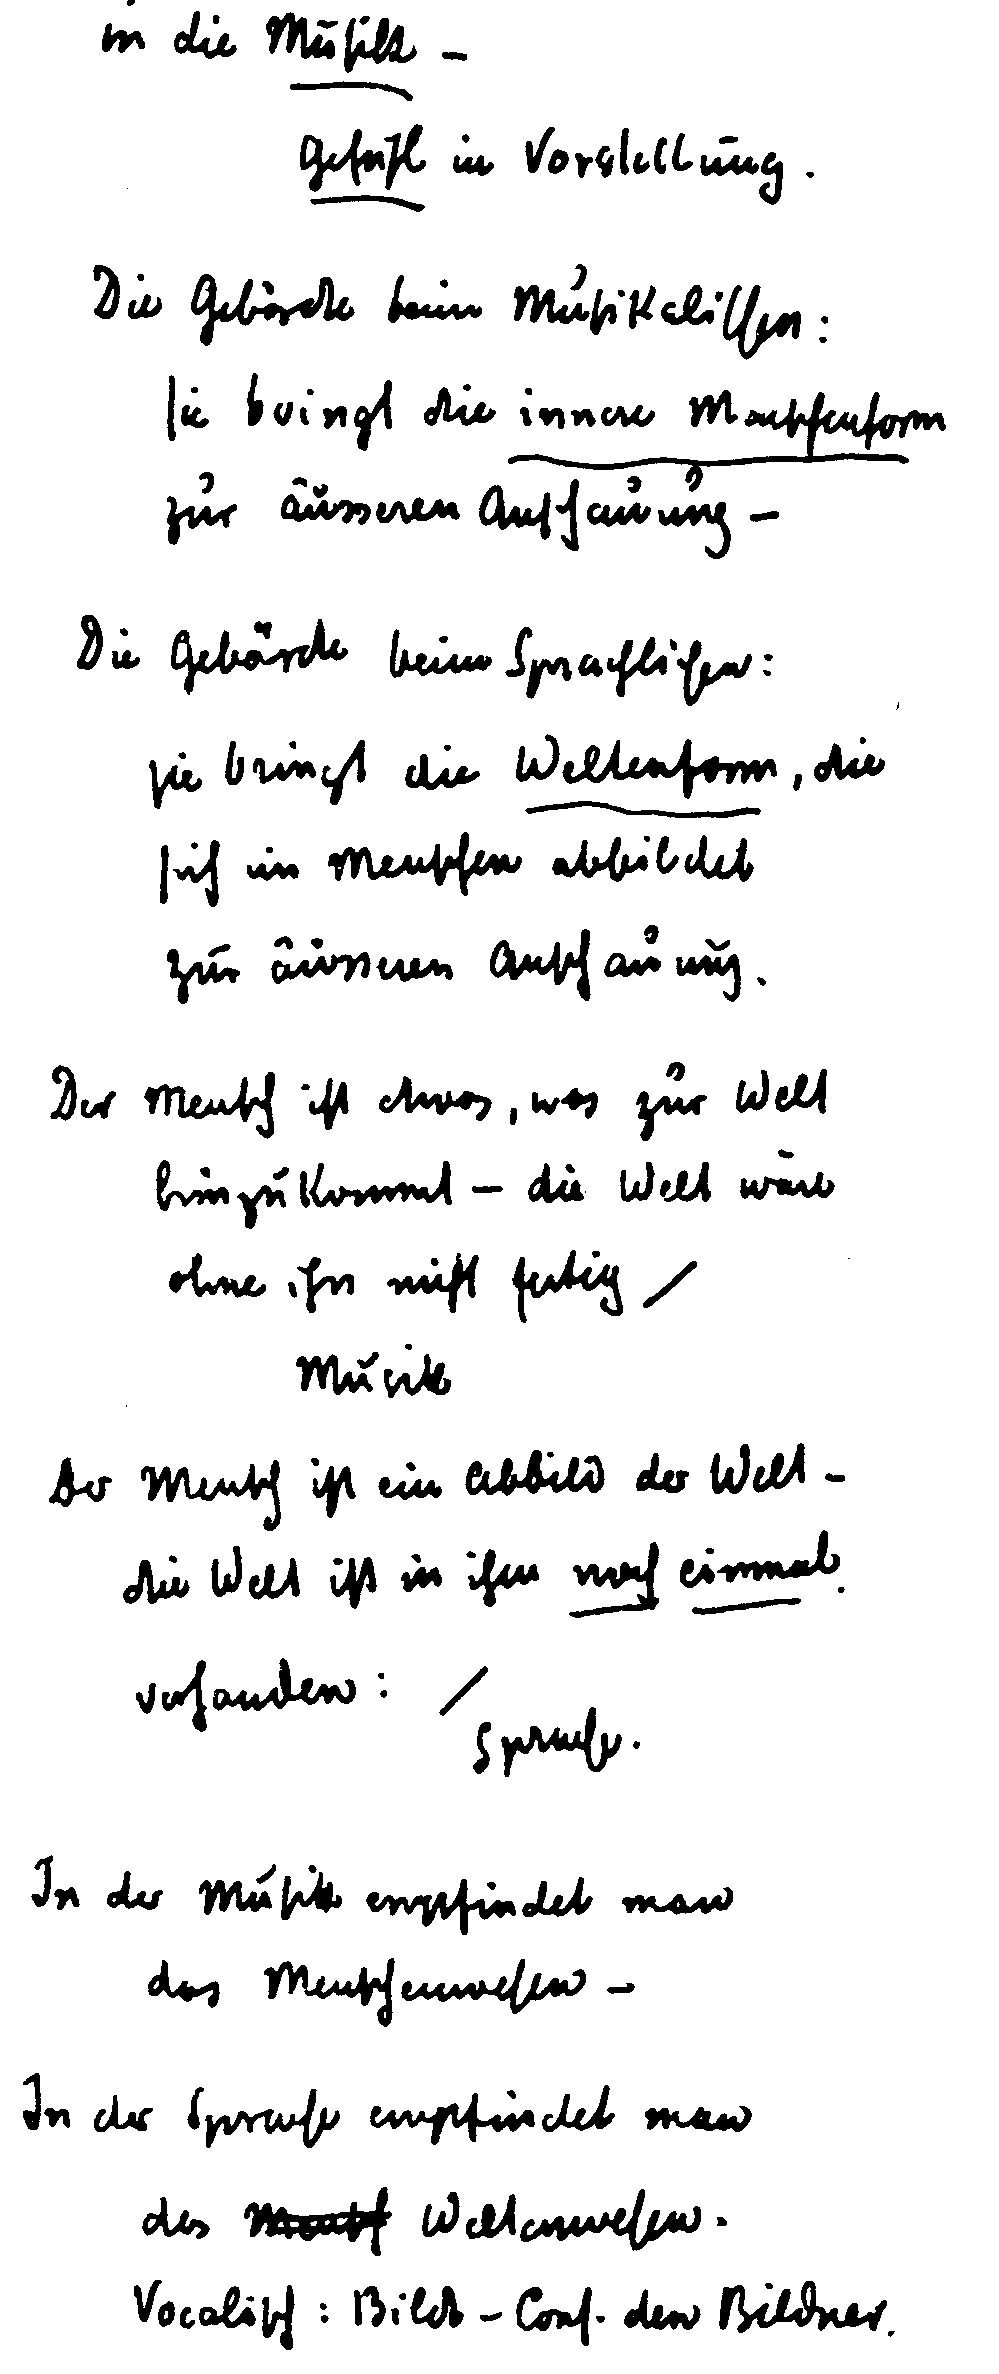 in die Musik –
Gefühl in Vorstellung.
Die Gebärde beim Musikalischen:
sie bringt die innere Menschenform
zur äusseren Anschauung –
Die Gebärde beim Sprachlichen:
sie bringt die Weltenform, die
sich im Menschen abbildet
zur äusseren Anschauung.
Der Mensch ist etwas, was zur Welt
hinzukommt – die Welt wäre
ohne ihn nicht fertig /
Musik
Der Mensch ist ein Abbild der Welt –
die Welt ist in ihm noch einmal.
vorhanden: /
Sprache.
In der Musik empfindet man
das Menschenwesen –
In der Sprache empfindet man
das Mensch Weltenwesen.
Vocalisch: Bild – Cons. den Bildner.